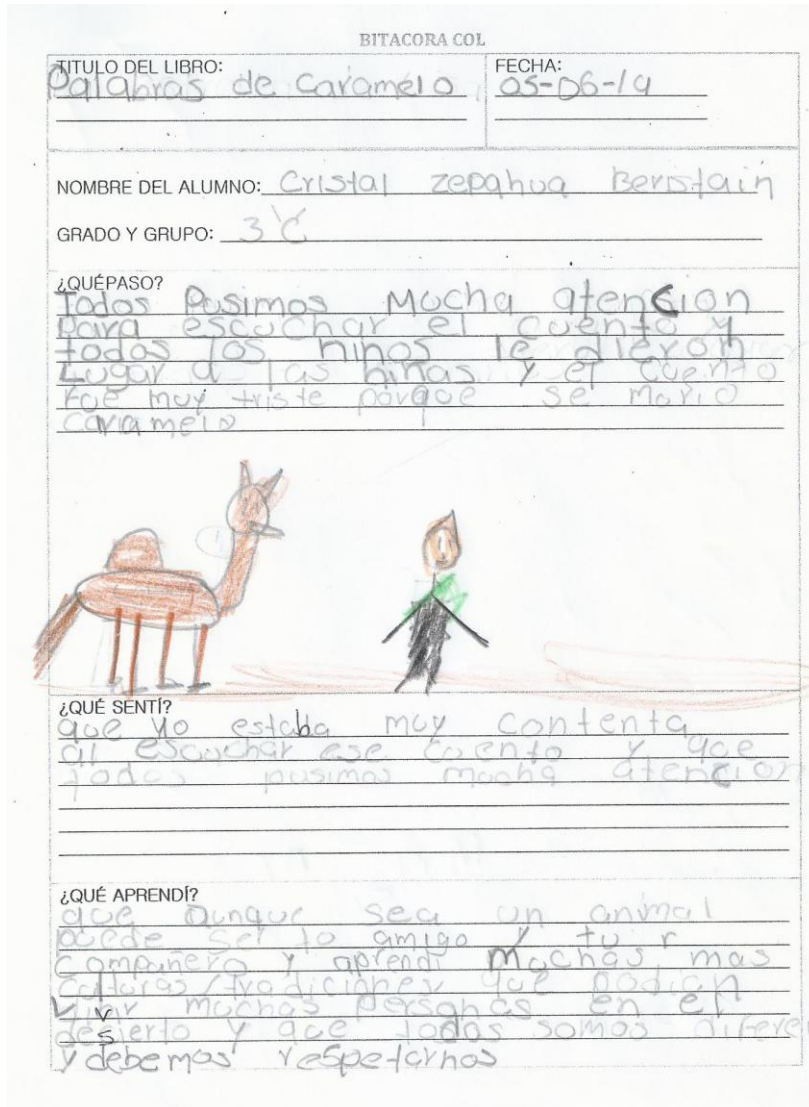 BITACORA COL
TITULO DEL LIBRO:
Palabras de Caramelo
FECHA:
05-06-19
NOMBRE DEL ALUMNO: Cristal zepahua Beristain
GRADO Y GRUPO: 3 C
¿QUÉPASO?
Todos Pusimos Mucha atencion
Para escuchar el cuento y
todos los niños le dieron
Lugar a las niñas y el cuento
Fue muy triste porque se morio
caramelo
¿QUÉ SENTÍ?
que yo estaba muy contenta
al escuchar ese cuento y que
todos pusimos mucha atencion
¿QUÉ APRENDÍ?
que aunque sea un animal
puede ser tu amigo y tu
compañero y aprendi muchas mas
culturas/tradiciones que podian
vivir muchas personas en el
desierto y que todos somos difere
y debemos respetarnos